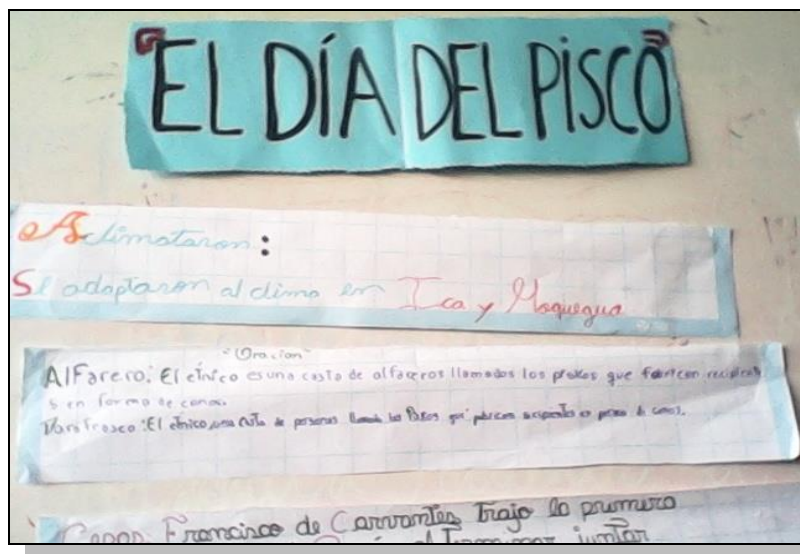 "EL DÍA DEL PISCO"
Aclimataron:
Se adaptaron al clima en Ica y Moquegua
"Oracion"
Alfarero: El etnico es una casta de alfareros llamados los piskos que fabrican recipiente
s en forma de conos.
Parafraseo: El etnico, una casta de personas llamada los Piskos que
Francisco de Carvantes trajo la primera
al terminar juntar